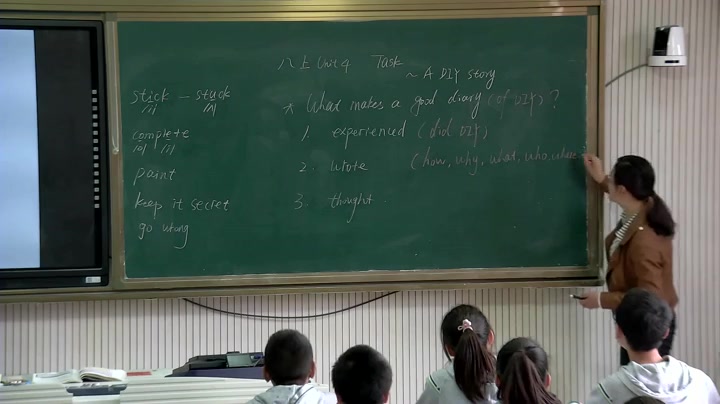 八上 Unit 4 Task
~ A DIY story
stick - stuck
/ɪ/ /ʌ/
complete
/ə/ /iː/
paint
keep it secret
go wrong
* What makes a good diary (of DIY)?
1. experienced (did DIY)
2. wrote (how, why, what, who, where
3. thought